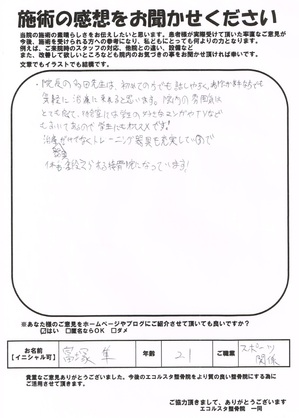 施術の感想をお聞かせください
当院の施術の素晴らしさをお伝えしたいと思います。患者様が実際受けて頂いた率直なご意見が
今後、施術を受けられる方への参考になり、私どもにとって何よりの力となります。
例えば、ご来院時のスタッフの対応、他院との違い、設備など
また、改善して欲しいところなども院内のお気づきの事をお聞かせ頂ければ幸いです。
文章でもイラストでも結構です。
・院長の 先生は、初めての方でも話しやすく、
気軽に治療に来れると思います。院内の雰囲気は
とても良く、待合室には学生の マンガやTVなど
も あるので学生にもオススメです!
治療だけでなくトレーニング器具も充実しているので
接骨院になっています!
※あなた様のご意見をホームページやブログにご紹介させて頂いても良いですか?
はい □匿名ならOK □ダメ
お名前
【イニシャル可】
年齢
21
ご職業
スポーツ
関係
貴重なご意見ありがとうございました。今後のエコルスタ整骨院をより質の良い整骨院にする為に
ご活用させて頂きます。
ご協力頂きまして、ありがとうございます
エコルスタ整骨院 一同